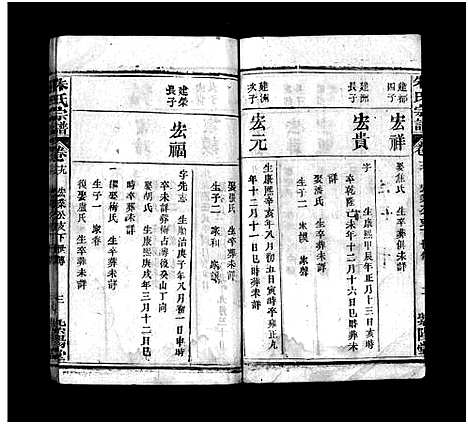 朱氏宗譜
建都四子
宏祥
娶生氏 生卒葬俱未詳
建洲長子
宏貴
字 生康熙甲辰年正月十三日亥時
卒乾隆己未年十二月十六日巳時葬未詳
娶潘氏 生卒葬未詳
生子二
建洲次子
宏元
生康熙辛亥年八月初五日寅時卒雍正九
年十二月十一日
葬未詳
建榮長子
宏福
字先志 生順治庚子年八月初一日申時
卒未詳葬梅占嶺癸山丁向
娶胡氏 生康熙庚戌年三月十二日巳
時卒葬未詳
生子二
娶張氏 生卒葬未詳
生子二 家和
娶梅氏 生卒葬未詳
生子一 家春
復娶盧氏 生卒葬未詳
朱氏宗譜
公支下世傳
三
紫陽堂